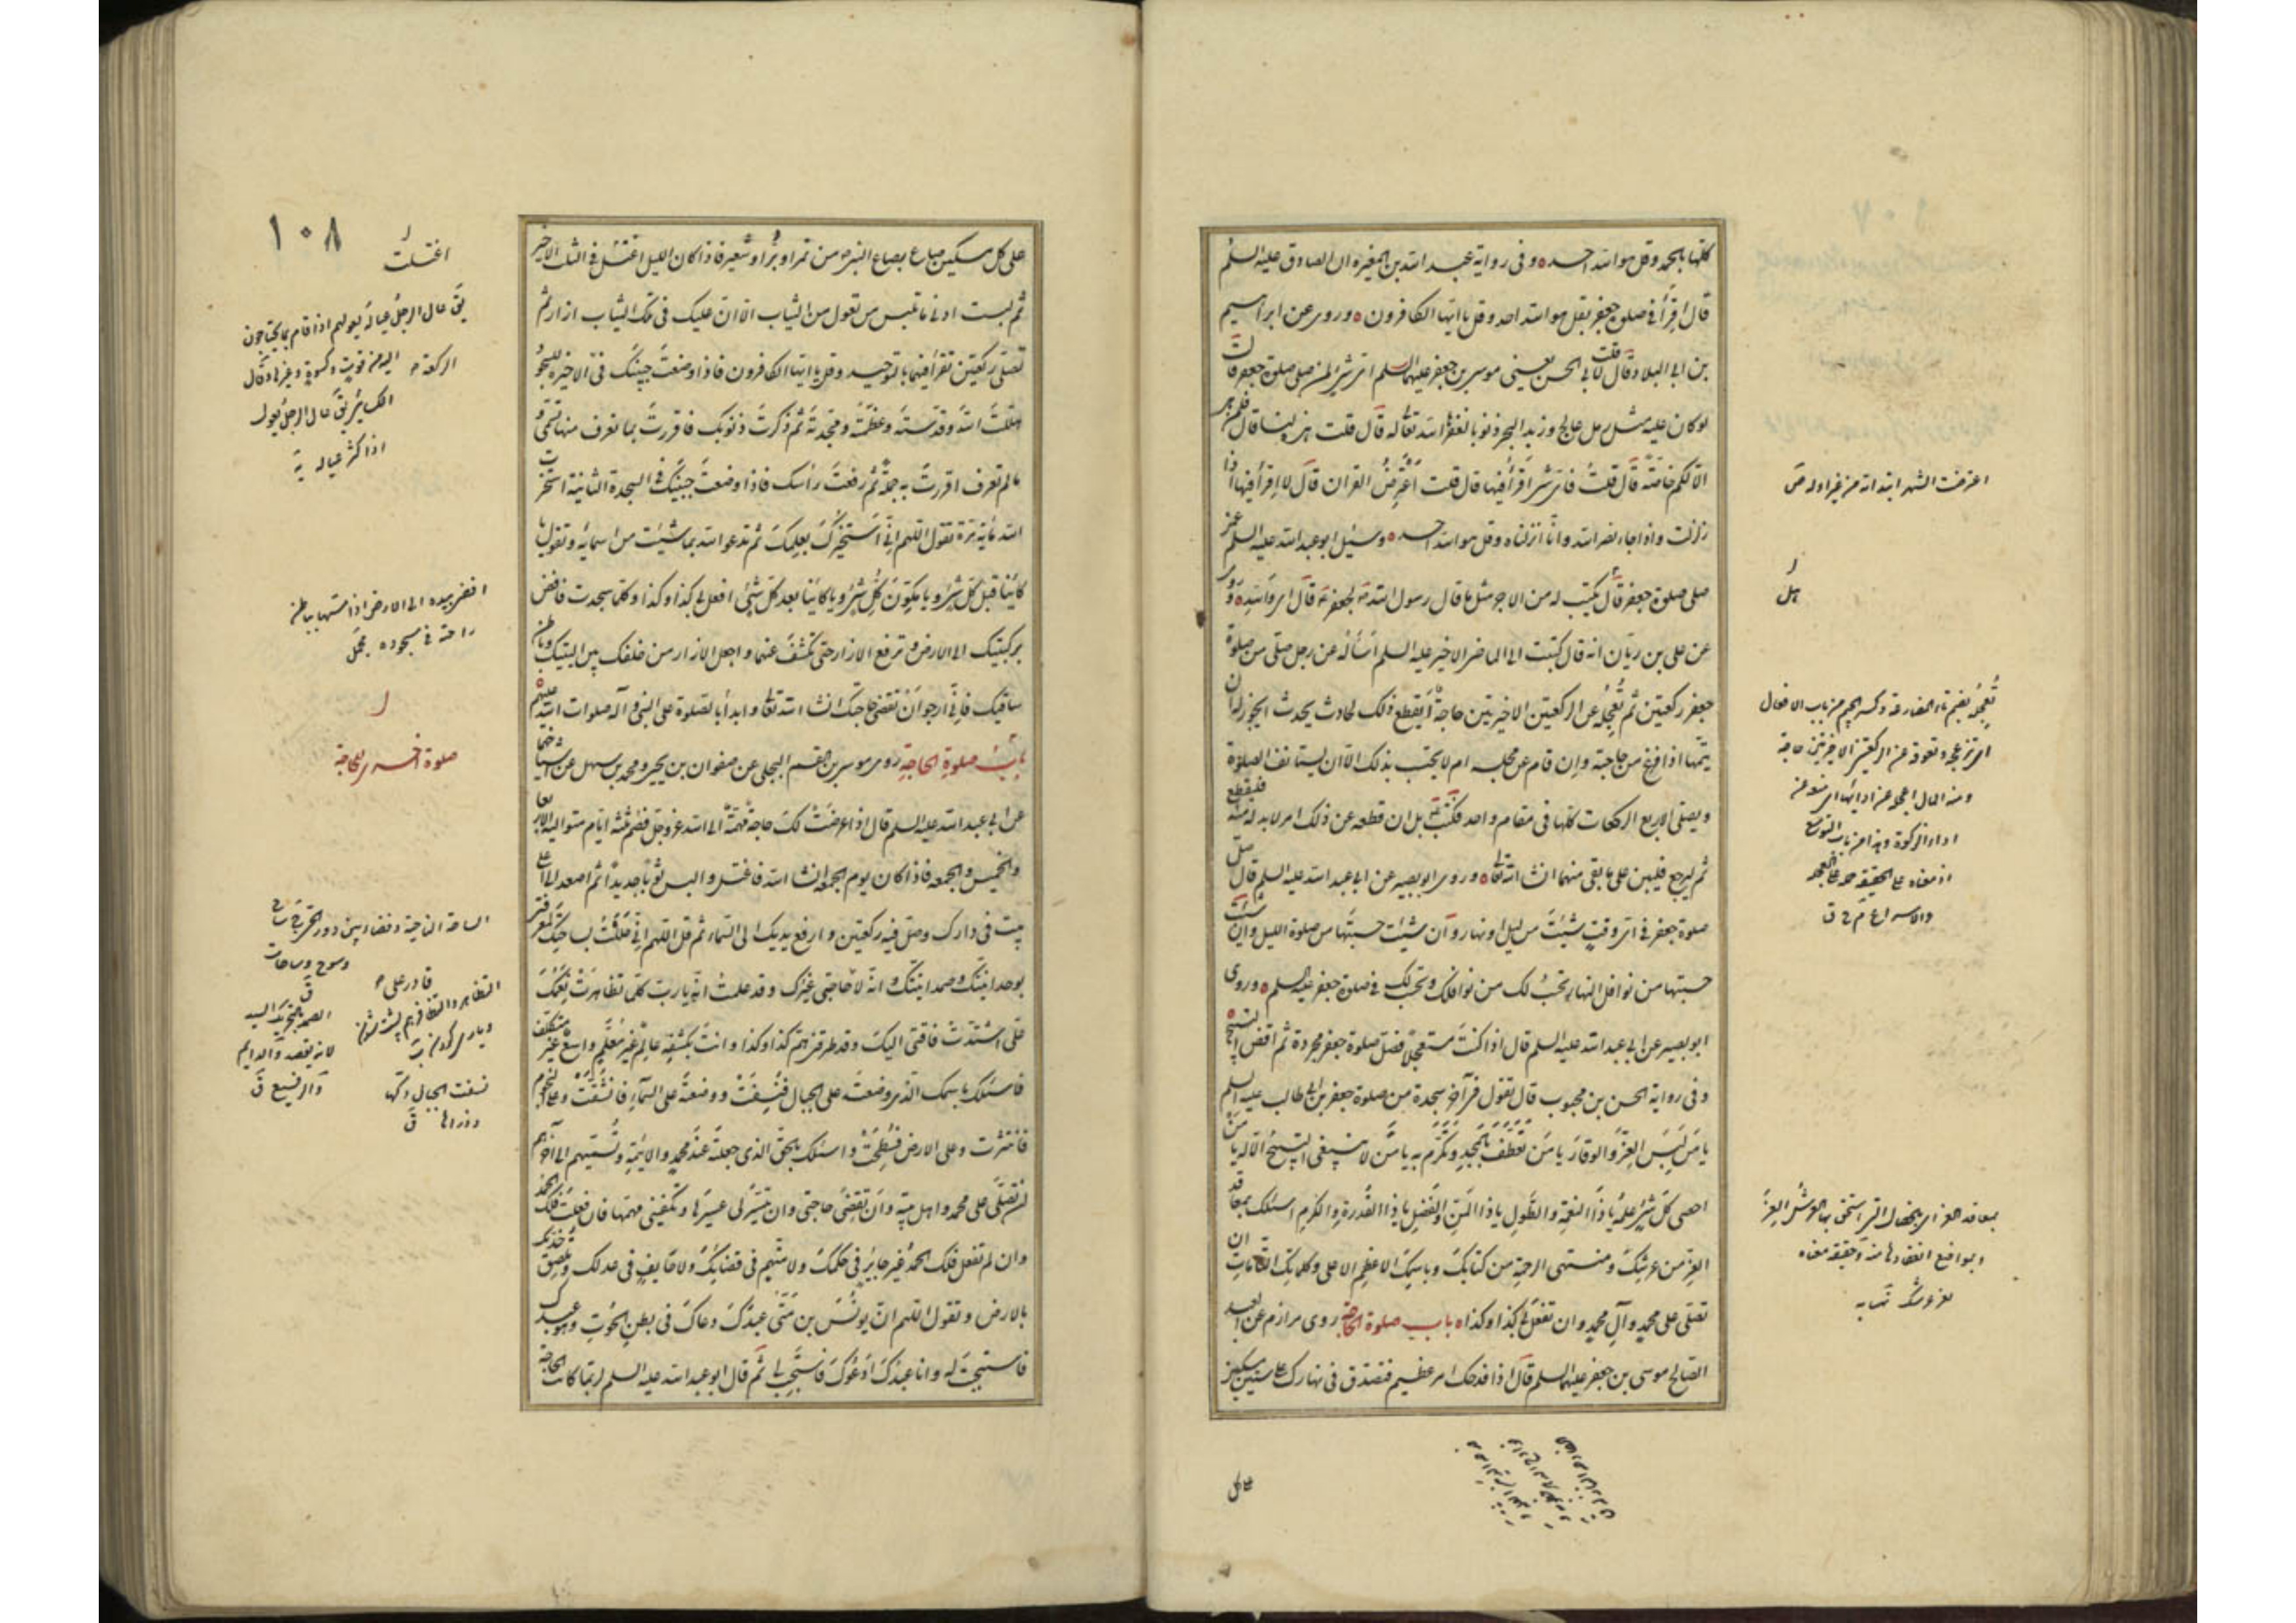 كلها بالحمد وقل هو الله احد وفي رواية عبد الله بن المغيرة ان الصادق عليه السلم
قال اقرأ في صلوة جعفر بقل هو الله احد وقل يا ايها الكافرون وروى عن ابراهيم
بن ابي البلاد قال قلت لابي الحسن يعني موسى بن جعفر عليهما السلم اى شئ لمن صلى صلوة جعفر قال
لو كان عليه مثل رمل عالج وزبد البحر ذنوبا لغفر الله تعالى له قال قلت هذه لنا قال فلمن هى
الا لكم خاصة قال قلت فاى شئ اقرأ فيها قال قلت اعترض القران قال لا اقرأ فيها اذا
زلزلت واذا جاء نصر الله وانا انزلناه وقل هو الله احد وسئل ابو عبد الله عليه السلم عمن
صلى صلوة جعفر هل يكتب له من الاجر مثل ما قال رسول الله لجعفر قال اى والله وروى
عن على بن ريان انه قال كتبت الى الماضى الاخير عليه السلم اسأله عن رجل صلى من صلوة
جعفر ركعتين ثم تعجله عن الركعتين الاخيرتين حاجة أيقطع ذلك لحادث يحدث ايجوز له ان
يتمها اذا فرغ من حاجته وان قام عن مجلسه ام لا يحتسب بذلك الا ان يستانف الصلوة
ويصلى الاربع الركعات كلها في مقام واحد فكتب بلى ان قطعه عن ذلك امر لا بد له منه فليقطع
ثم ليرجع فليبن على ما بقى منها ان شاء الله تعالى وروى ابو بصير عن ابى عبد الله عليه السلم قال صل
صلوة جعفر في اى وقت شئت من ليل او نهار وان شئت حسبتها من صلوة الليل وان شئت
حسبتها من نوافل النهار تحسب لك من نوافلك وتحسب لك في صلوة جعفر عليه السلم وروى
ابو بصير عن ابى عبد الله عليه السلم قال اذا كنت مستعجلا فصل صلوة جعفر مجردة ثم اقض التسبيح
وفي رواية الحسن بن محبوب قال تقول في آخر سجدة من صلوة جعفر بن ابى طالب عليه السلم
يا من لبس العز والوقار يا من تعطف بالمجد وتكرم به يا من لا ينبغى التسبيح الا له يا من
احصى كل شئ علمه يا ذا النعمة والطول يا ذا المن والفضل يا ذا القدرة والكرم اسئلك بمعاقد
العز من عرشك ومنتهى الرحمة من كتابك وباسمك الاعظم الاعلى وكلماتك التامات ان
تصلى على محمد وآل محمد وان تفعل بى كذا وكذا باب صلوة الحاجة روى مرازم عن العبد
الصالح موسى بن جعفر عليهما السلم قال اذا فدحك امر عظيم فتصدق في نهارك على ستين مسكينا
اعترضت الشهر ابتدأته من غير اوله ص
هل
تعجله بضم تاء المضارعة وكسر الجيم من باب الافعال
معاقد العز اى بالخصال التى استحق بها العرش العز
وبمواضع انعقادها منه وحقيقة معناه
بعز عرشك نهايه
على
١٠٨
على كل مسكين صاع بصاع النبى من تمر او بر او شعير فاذا كان الليل اغتسل في الثلث الاخير
ثم لبست ادنى ما تلبس من تعول من الثياب الا ان عليك في تلك الثياب ازار ثم
تصلى ركعتين تقرأ فيهما بالتوحيد وقل يا ايها الكافرون فاذا وضعت جبينك في الاخيرة للسجود
هللت الله وقدسته وعظمته ومجدته ثم ذكرت ذنوبك فاقررت بما تعرف منها تسمى وما
لم تعرف اقررت به جملة ثم رفعت رأسك فاذا وضعت جبينك في السجدة الثانية استخرت
الله مائة مرة تقول اللهم انى استخيرك بعلمك ثم تدعو الله بما شئت من اسمائه وتقول يا
كائنا قبل كل شئ ويا مكون كل شئ ويا كائنا بعد كل شئ افعل بى كذا وكذا وكلما سجدت فافض
بركبتيك الى الارض وترفع الازار حتى تكشف عنهما واجعل الازار من خلفك بين اليتيك وباطن
ساقيك فانى ارجو ان تقضى حاجتك انشاء الله تعالى وابدأ بالصلوة على النبى وآله صلوات الله عليهم
باب صلوة الحاجة روى موسى بن القسم البجلى عن صفوان بن يحيى ومحمد بن سهل عن اشياخهما
عن ابى عبد الله عليه السلم قال اذا عرضت لك حاجة مهمة الى الله عز وجل فصم ثلثة ايام متوالية الاربعا
والخميس والجمعه فاذا كان يوم الجمعه انشاء الله فاغتسل والبس ثوبا جديدا ثم اصعد الى اعلى
بيت في دارك وصل فيه ركعتين وارفع يديك الى السماء ثم قل اللهم انى حللت بساحتك لمعرفتى
بوحدانيتك وصمدانيتك وانه لا قادر على حاجتى غيرك وقد علمت يا رب انه كلما تظاهرت نعمك
على اشتدت فاقتى اليك وقد طرقنى هم كذا وكذا وانت بكشفه عالم غير معلم واسع غير متكلف
فاسئلك باسمك الذى وضعته على الجبال فنسفت ووضعته على السماء فانشقت وعلى النجوم
فانتثرت وعلى الارض فسطحت واسئلك بالحق الذى جعلته عند محمد والائمة وتسميهم الى آخرهم
ان تصلى على محمد واهل بيته وان تقضى حاجتى وان تيسر لى عسيرها وتكفينى مهمها فان فعلت فلك الحمد
وان لم تفعل فلك الحمد غير جائر في حكمك ولا متهم في قضائك ولا حائف في عدلك وتلصق خدك
بالارض وتقول اللهم ان يونس بن متى عبدك دعاك في بطن الحوت وهو عبدك
فاستجبت له وانا عبدك ادعوك فاستجب لى ثم قال ابو عبد الله عليه السلم لربما كانت الحاجة
اغتسلت
يق عال الرجل عياله يعولهم اذا قام بما يحتاجون
اليه من قوت وكسوة وغيرها وقال
الكسائى يق عال الرجل يعول
اذا كثر عياله يه
افضى بيده الى الارض اذا مسها بباطن
راحته في سجوده مجمل
صلوة اخرى للحاجة
قادر على